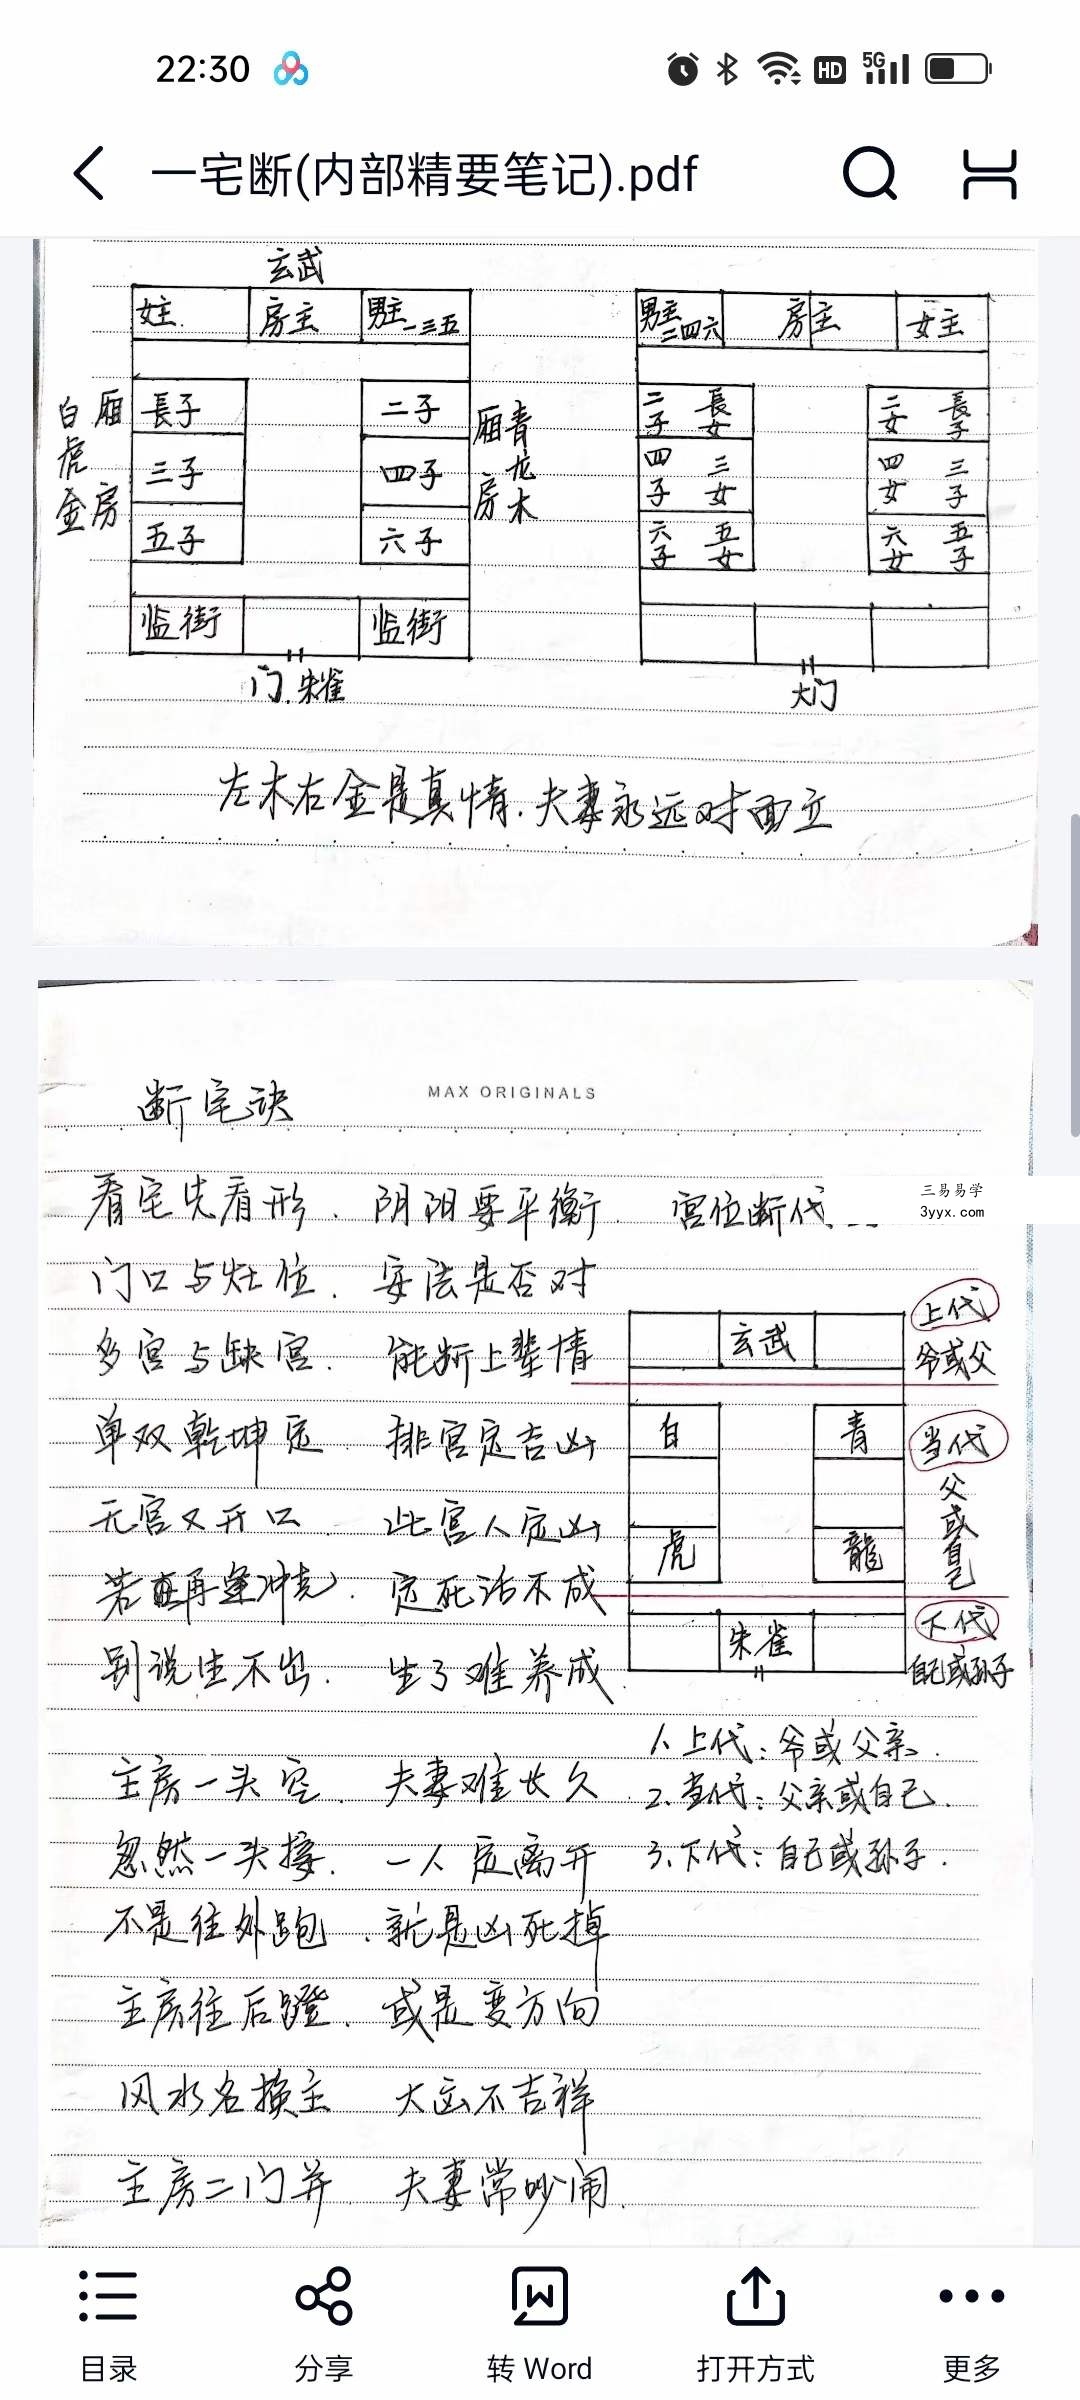 22:30
HD 5G
一宅断(内部精要笔记).pdf
玄武
女主 房主 男主 一三五
男主 二四六 房主 女主
白虎金 厢房 長子 二子 厢房 青龙木
三子 四子
五子 六子
二子 長女 二女 長子
四子 三女 四女 三子
六子 五女 六女 五子
临街 临街
门.朱雀
大门
左木右金是真情.夫妻永远对面立
MAX ORIGINALS
断宅诀
三易易学
3yyx.com
看宅先看形.阴阳要平衡.宫位断代
门口与灶位.安法是否对
多宫与缺宫.能断上辈情
单双乾坤定.排宫定吉凶
无宫又开口.此宫人定凶
若再逢冲克.定死活不成
别说生不出.生了难养成.
玄武 上代
爷或父
白 青 当代
父或自己
虎 龍
朱雀 下代
自己或孙子
1.上代:爷或父亲.
2.当代:父亲或自己.
3.下代:自己或孙子.
主房一头空.夫妻难长久
忽然一头接.一人定离开
不是往外跑.就是凶死掉
主房往后蹬.或是变方向
风水名换主 大运不吉祥
主房二门并.夫妻常吵闹.
目录
分享
转 Word
打开方式
更多